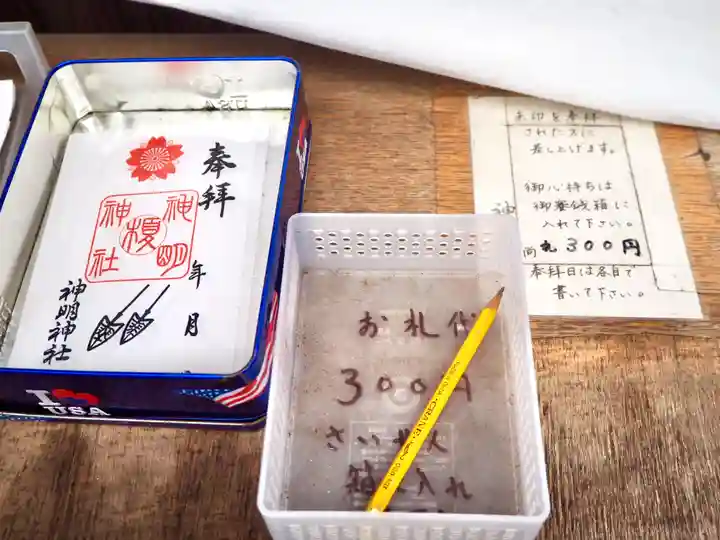 奉拝
神明
榎
神社
年
月
神明神社
I USA
お札代
300円
さいせん
箱に入れ
CRANE
朱印を奉拝
された方に
差し上げます。
御心持ちは
御賽銭箱に
入れて下さい。
尚札300円
奉拝日は各自で
書いて下さい。